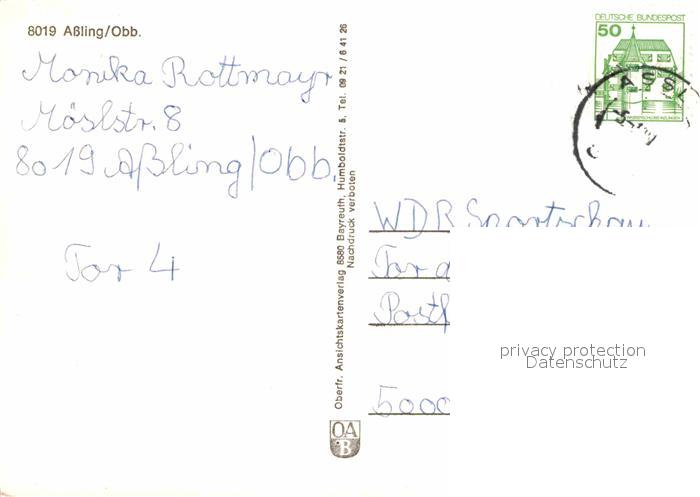 8019 Aßling/Obb.
Monika Rottmayr
Möslstr. 8
8019 Aßling/Obb.
Tor 4
Oberfr. Ansichtskartenverlag 8580 Bayreuth, Humboldtstr. 5, Tel. 09 21 / 6 41 26
Nachdruck verboten
OA
B
DEUTSCHE BUNDESPOST
50
WASSERSCHLOSS INZLINGEN
WDR Sportschau
Tor d
Postf
5000
privacy protection
Datenschutz